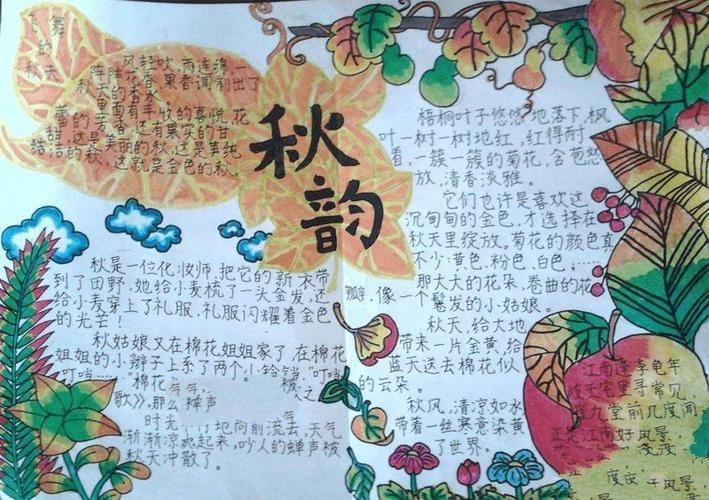 飞舞
的
秋天
风轻吹,雨连绵,一
阵阵花香、果香调制出了
秋天的香水。
里面有丰收的喜悦,花
蕾的芳香,还有果实的甘
甜,这是美丽的秋,这是事纯
结洁的秋,这就是金色的秋。
秋韵
秋是一位化妆师,把它的新衣带
到了田野,她给小麦梳了一头金发,还
给小麦穿上了礼服,礼服闪耀着金色
的光芒!
秋姑娘又在棉花姐姐家了,在棉花
姐姐的小辫子上系了两个小铃铛,"叮铛
叮铛……"棉花
歌》,那么蝉声 被
时光 地向前流去,天气
渐渐凉爽起来,吵人的蝉声被
秋天冲散了。
梧桐叶子悠悠地落下,枫
叶一树一树地红,红得耐
看,一簇一簇的菊花,含苞怒
放,清香淡雅。
它们也许是喜欢这
沉甸甸的金色,才选择在
秋天里绽放,菊花的颜色真
不少:黄色、粉色、白色……
那大大的花朵,卷曲的花
瓣,像一个鬈发的小姑娘。
秋天,给大地
带来一片金黄,给
蓝天送去棉花似
的云朵。
秋风,清凉如水
带着一丝寒意染黄
了世界。
江南逢李龟年
岐王宅里寻常见
崔九堂前几度闻
正是江南好风景